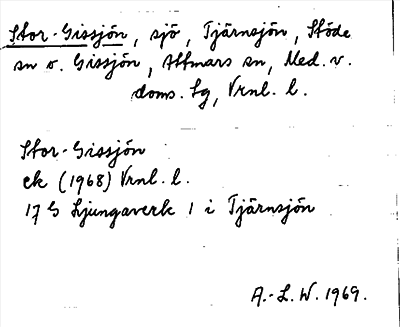 Stor-Gissjön, sjö, Tjärnsjön, Stöde
sn o. Gissjön, Attmars sn, Med. v.
doms. tg, Vrnl. l.
Stor-Gissjön
ek (1968) Vrnl. l.
17 G Ljungaverk 1 i Tjärnsjön
A.-L. W. 1969.